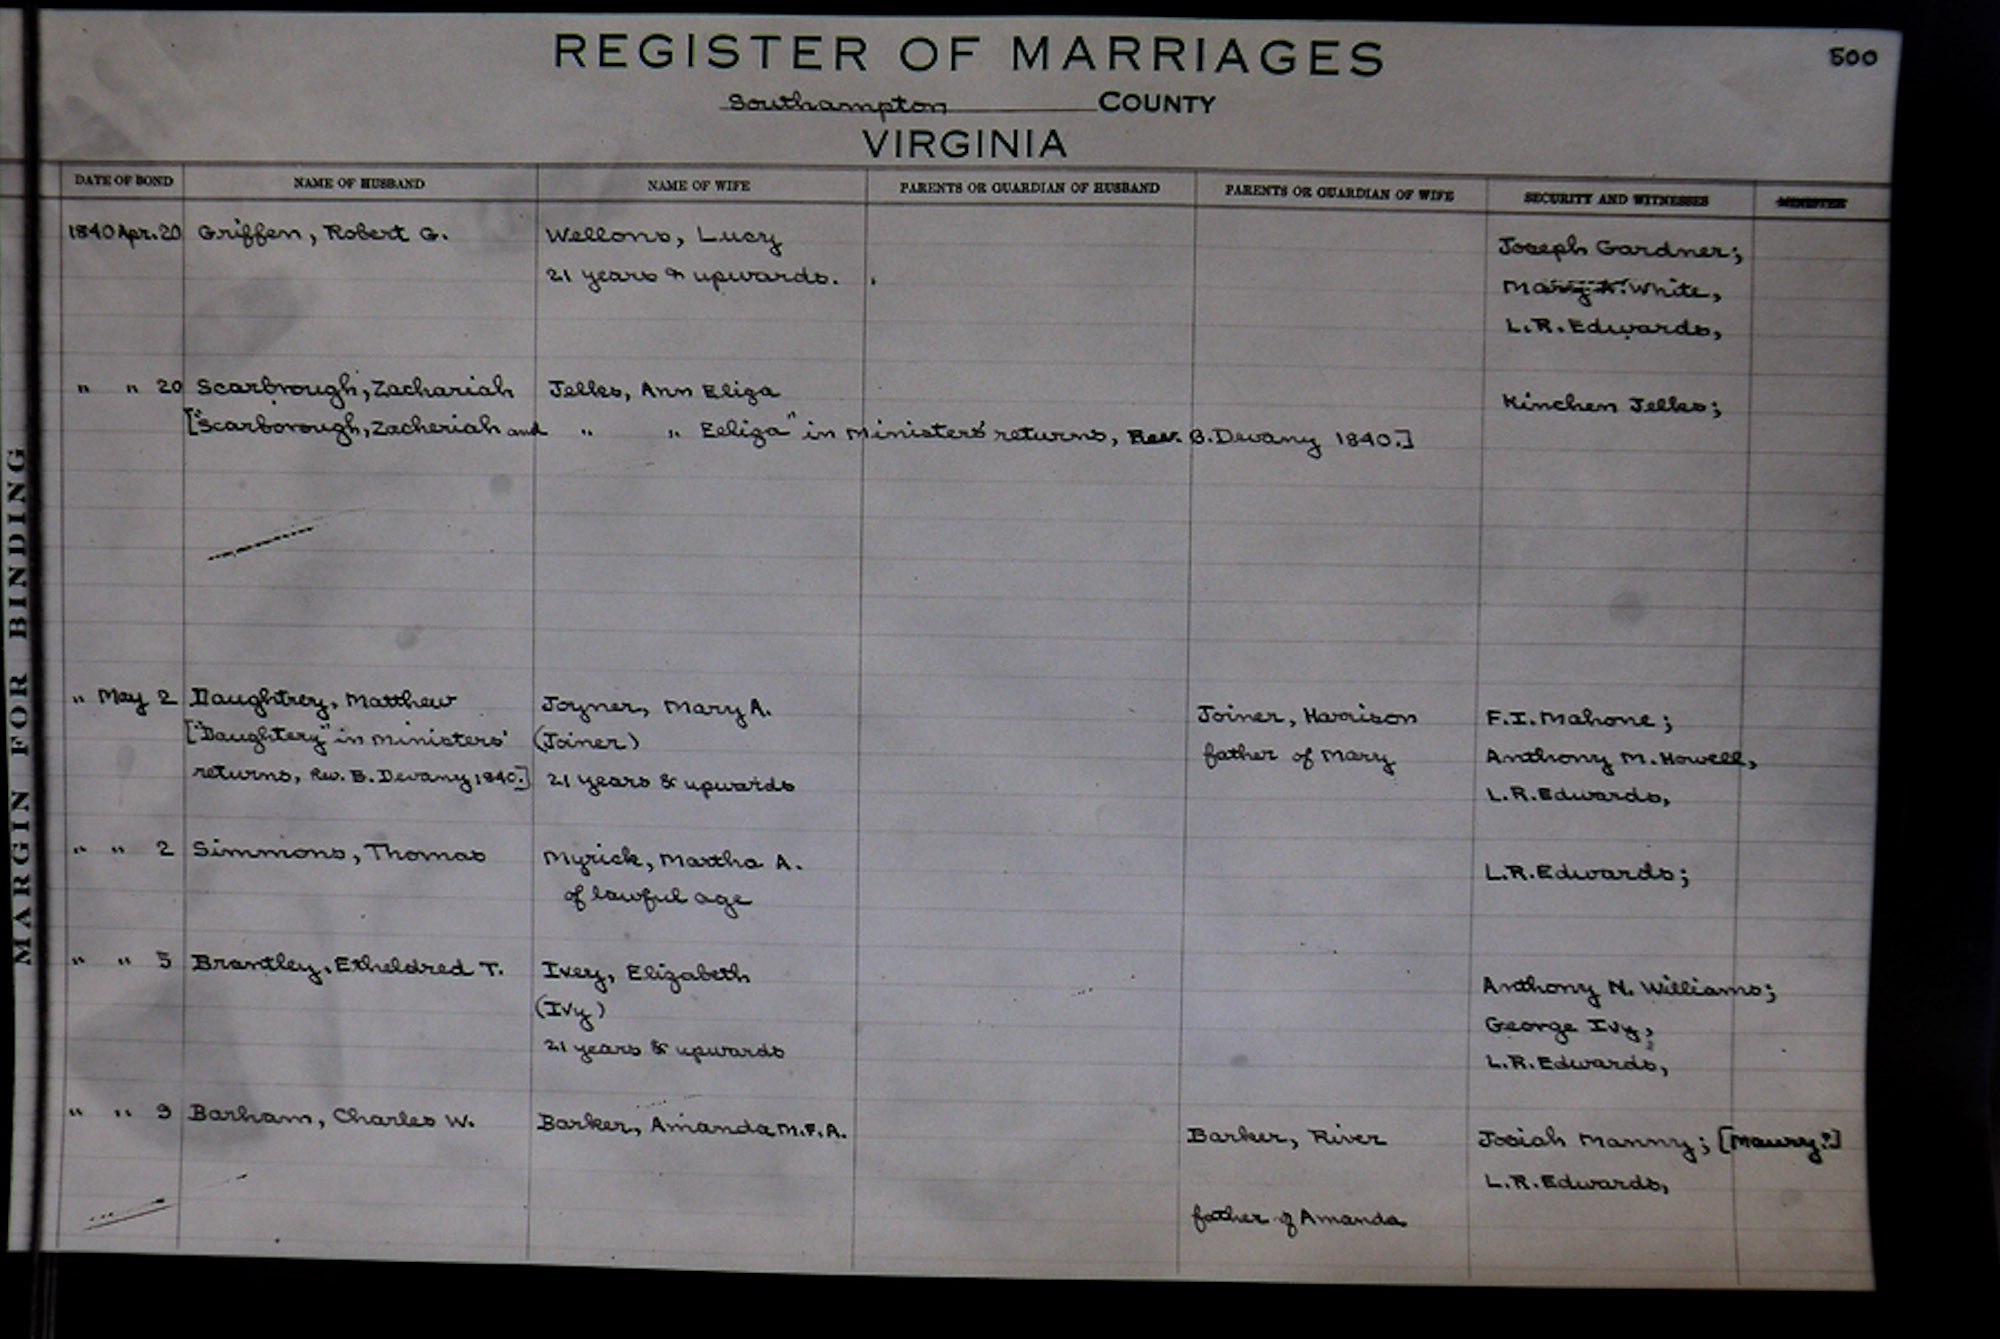 REGISTER OF MARRIAGES
500
Southampton COUNTY
VIRGINIA
MARGIN FOR BINDING
DATE OF BOND NAME OF HUSBAND NAME OF WIFE PARENTS OR GUARDIAN OF HUSBAND PARENTS OR GUARDIAN OF WIFE SECURITY AND WITNESSES MINISTER
1840 Apr. 20 Griffen, Robert G. Wellons, Lucy Joseph Gardner;
21 years & upwards. White,
L.R. Edwards,
" " 20 Scarbrough, Zachariah Jelks, Ann Eliza Kinchen Jelks;
["Scarborough, Zacheriah and " " Eeliza" in ministers' returns, Rev. B. Devany 1840.]
" May 2 Daughtrey, Matthew Joyner, Mary A. Joiner, Harrison F.I. Mahone;
["Daughtery" in ministers' (Joiner) father of Mary Anthony M. Howell,
returns, Rev. B. Devany 1840.] 21 years & upwards L.R. Edwards,
" " 2 Simmons, Thomas Myrick, Martha A. L.R. Edwards;
of lawful age
" " 5 Brantley, Etheldred T. Ivey, Elizabeth Anthony N. Williams;
(Ivy) George Ivy,
21 years & upwards L.R. Edwards,
" " 9 Barham, Charles W. Barker, Amanda M.F.A. Barker, River Josiah Manny; [Maury?]
L.R. Edwards,
father of Amanda